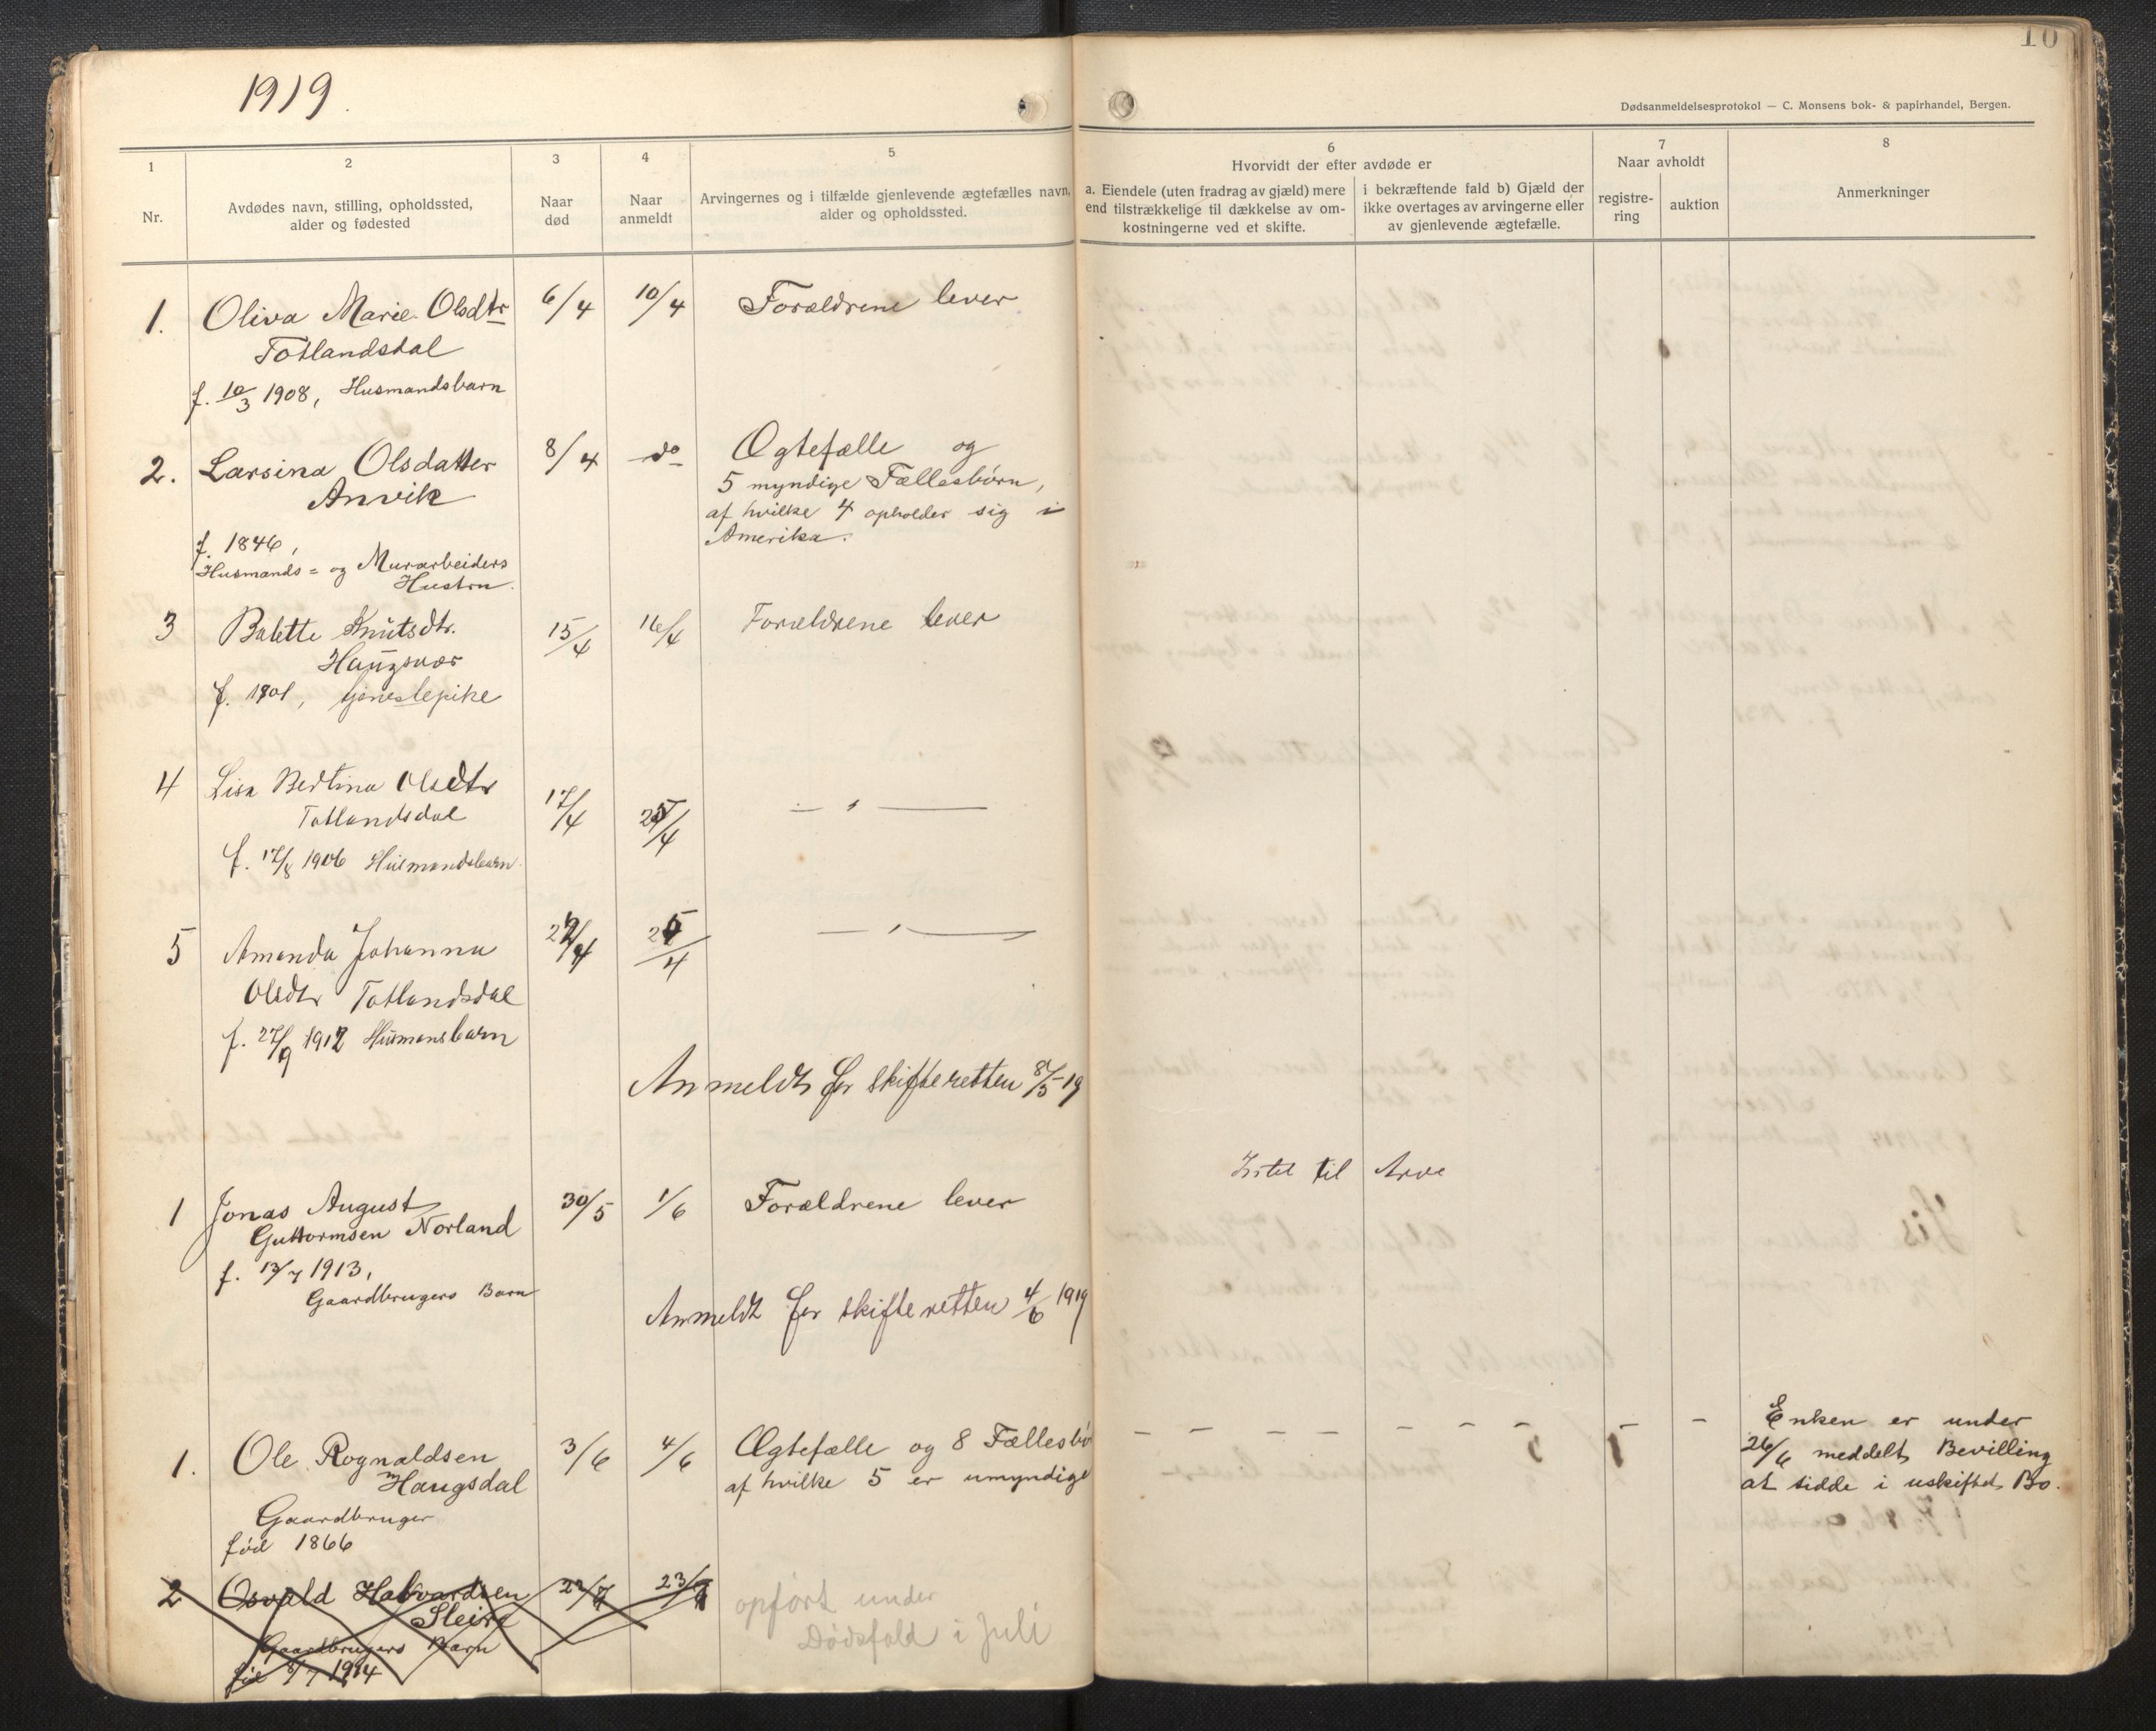 1919.
10
Dødsanmeldelsesprotokol — C. Monsens bok- & papirhandel, Bergen.
1
Nr.
2
Avdødes navn, stilling, opholdssted,
alder og fødested
3
Naar
død
4
Naar
anmeldt
5
Arvingernes og i tilfælde gjenlevende ægtefælles navn,
alder og opholdssted.
6
Hvorvidt der efter avdøde er
a. Eiendele (uten fradrag av gjæld) mere
end tilstrækkelige til dækkelse av om-
kostningerne ved et skifte.
i bekræftende fald b) Gjæld der
ikke overtages av arvingerne eller
av gjenlevende ægtefælle.
7
Naar avholdt
registre-
ring
auktion
8
Anmerkninger
1. Oliva Marie Olsdtr 6/4 10/4 Forældrene lever
Totlandsdal
f. 10/3 1908, Husmandsbarn
2. Larsina Olsdatter 8/4 do Ægtefælle og
Anvik 5 myndige Fællesbörn,
af hvilke 4 opholder sig i
Amerika.
f. 1846,
Husmands= og Murarbeiders
Hustru.
3 Balette Knutsdtr. 15/4 16/4 Forældrene lever
Haugsvær
f. 1901, tjenestepike
4 Lisa Bertina Olsdtr 17/4 25/4 — " —
Totlandsdal
f. 17/8 1906 Husmandsbarn.
5 Amanda Johanna 22/4 25/4 — " —
Olsdtr Totlandsdal
f. 27/9 1912 Husmansbarn
Anmeldt for skifteretten 8/5-19
1 Jonas August 30/5 1/6 Forældrene lever Intet til Arve
Guttormsen Norland
f. 13/7 1913,
Gaardbrugers Barn
Anmeldt for skifteretten 4/6 1919
1. Ole Rognaldsen 3/6 4/6 Ægtefælle og 8 Fællesbö — — — — — — — — — Enken er under
Haugsdal af hvilke 5 er umyndige 26/6 meddelt Bevilling
at sidde i uskiftet Bo.
Gaardbruger
föd 1866
2 Osvald Halvardsen 22/7 23/7 opfört under
Sleire Dödsfald i Juli
Gaardbrugers Barn
föd 8/7 1914